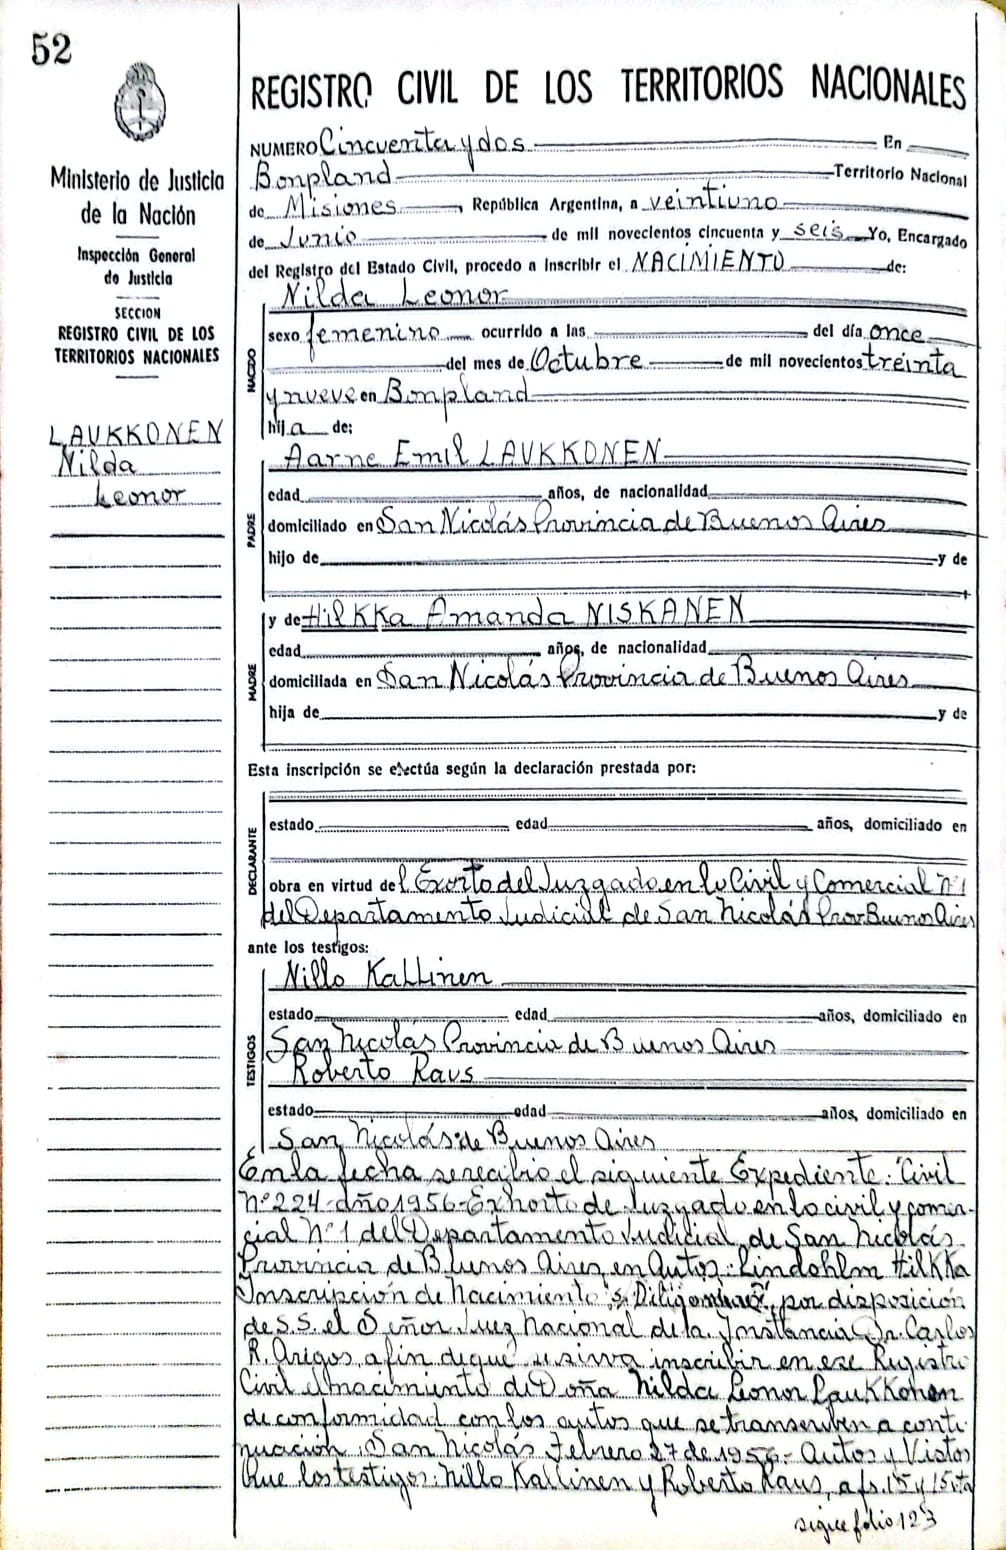 52
REGISTRO CIVIL DE LOS TERRITORIOS NACIONALES
Ministerio de Justicia
de la Nación
Inspección General
de Justicia
SECCION
REGISTRO CIVIL DE LOS
TERRITORIOS NACIONALES
LAUKKONEN
Nilda
Leonor
NUMERO Cincuenta y dos En
Bonpland Territorio Nacional
de Misiones, República Argentina, a veintiuno
de Junio de mil novecientos cincuenta y seis Yo, Encargado
del Registro del Estado Civil, procedo a inscribir el NACIMIENTO de:
NACIDO
Nilda Leonor
sexo femenino ocurrido a las del día once
del mes de Octubre de mil novecientos treinta
y nueve en Bonpland
hija de:
PADRE
Aarne Emil LAUKKONEN
edad años, de nacionalidad
domiciliado en San Nicolás Provincia de Buenos Aires
hijo de y de
MADRE
y de Hilkka Amanda NISKANEN
edad años, de nacionalidad
domiciliada en San Nicolás Provincia de Buenos Aires
hija de y de
Esta inscripción se efectúa según la declaración prestada por:
DECLARANTE
estado edad años, domiciliado en
obra en virtud del Exorto del Juzgado en lo Civil y Comercial Nº 1
del Departamento Judicial de San Nicolás Prov Buenos Aires
ante los testigos:
TESTIGOS
Nillo Kallinen
estado edad años, domiciliado en
San Nicolás Provincia de Buenos Aires
Roberto Raus
estado edad años, domiciliado en
San Nicolás de Buenos Aires
En la fecha se recibio el siguiente Expediente: "Civil
Nº 224-año 1956-Exhorto de Juzgado en lo civil y comer-
cial Nº 1 del Departamento Judicial de San Nicolás
Provincia de Buenos Aires en Autos: Lindohlm Hilkka
Inscripción de Nacimiento por disposición
de S.S. el Señor Juez Nacional de 1a. Instancia Dr. Carlos
R. Arigos, a fin de que se sirva inscribir en ese Registro
Civil el nacimiento de Doña Nilda Leonor Laukkohen
de conformidad con los autos que se transcriben a conti-
nuación: San Nicolás Febrero 27 de 1956.- Autos y Vistos
Que los testigos: Nillo Kallinen y Roberto Raus, a fs. 15 y 15vta
sigue folio 123